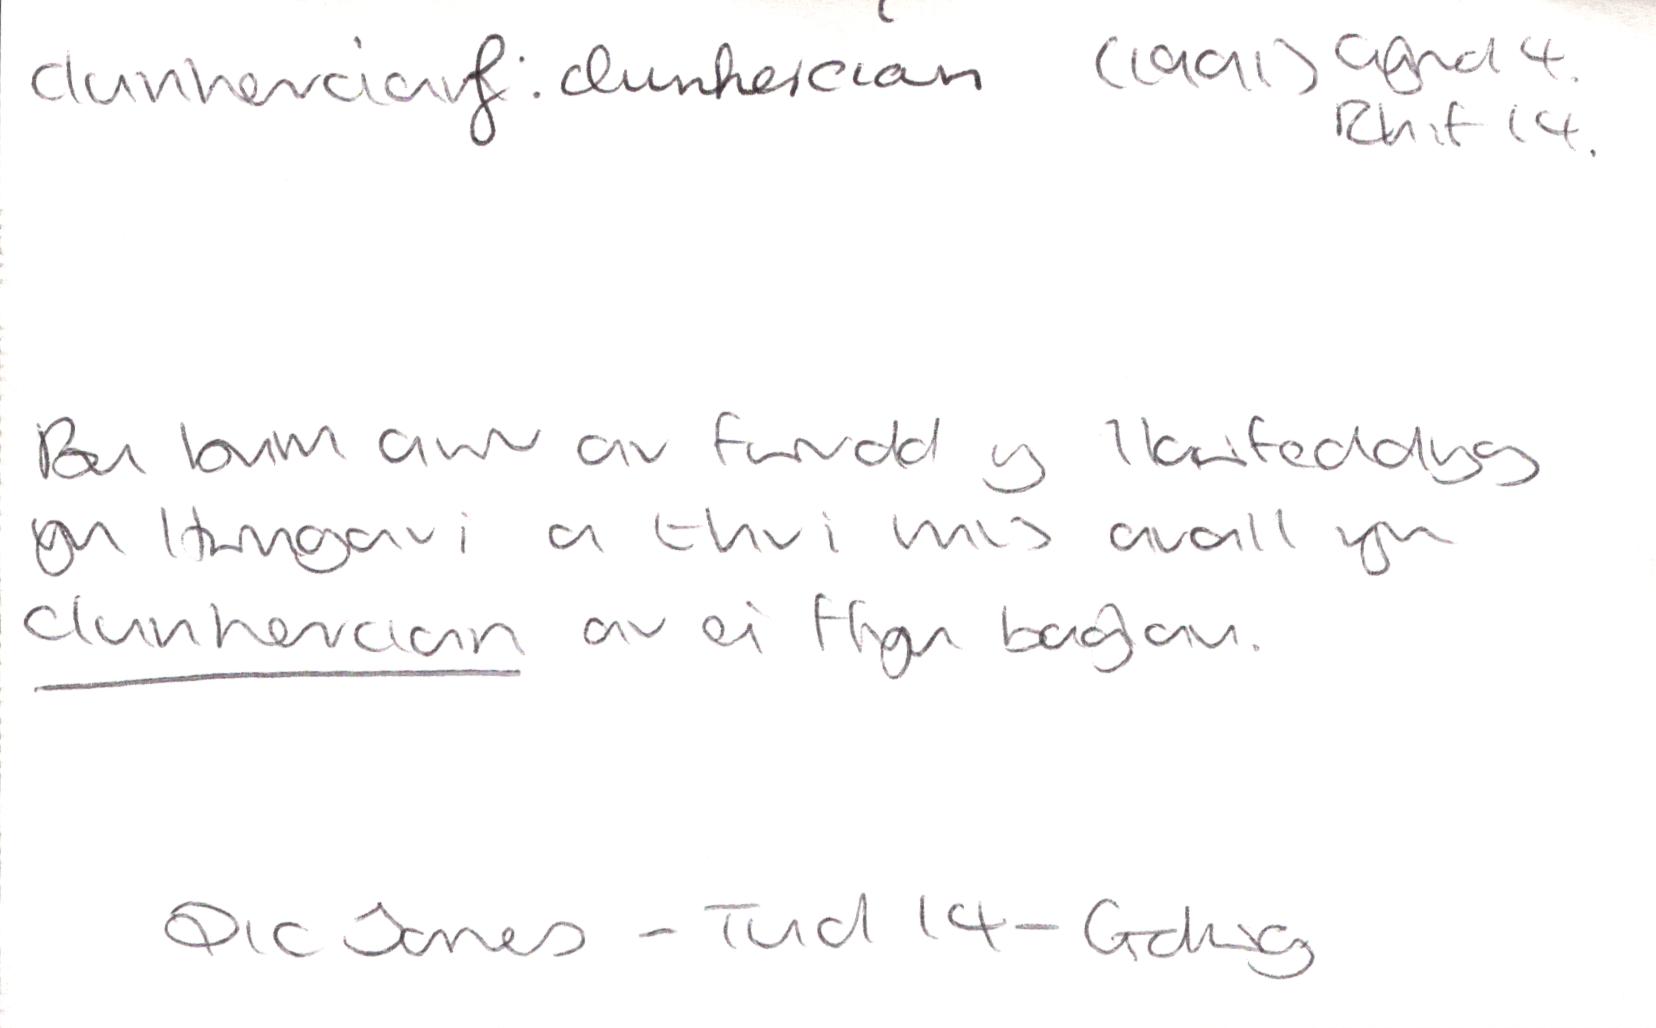 clunherciaf: clunhercian (1991) Cyfrol 4.
Rhif 14.
Bu bum awr ar fwrdd y llawfeddyg
yn Hwngari a thri mis arall yn
clunhercian ar ei ffyn baglau.
Dic Jones - Tud 14 - Golwg